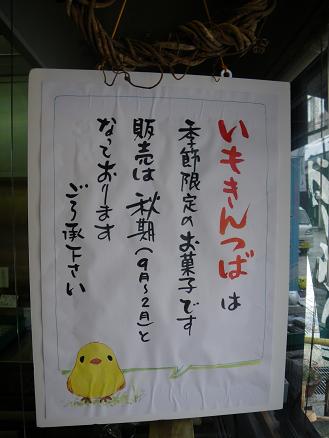 いもきんつば は
季節限定のお菓子です
販売は 秋期(9月~2月)と
なっております
ごろ承下さい